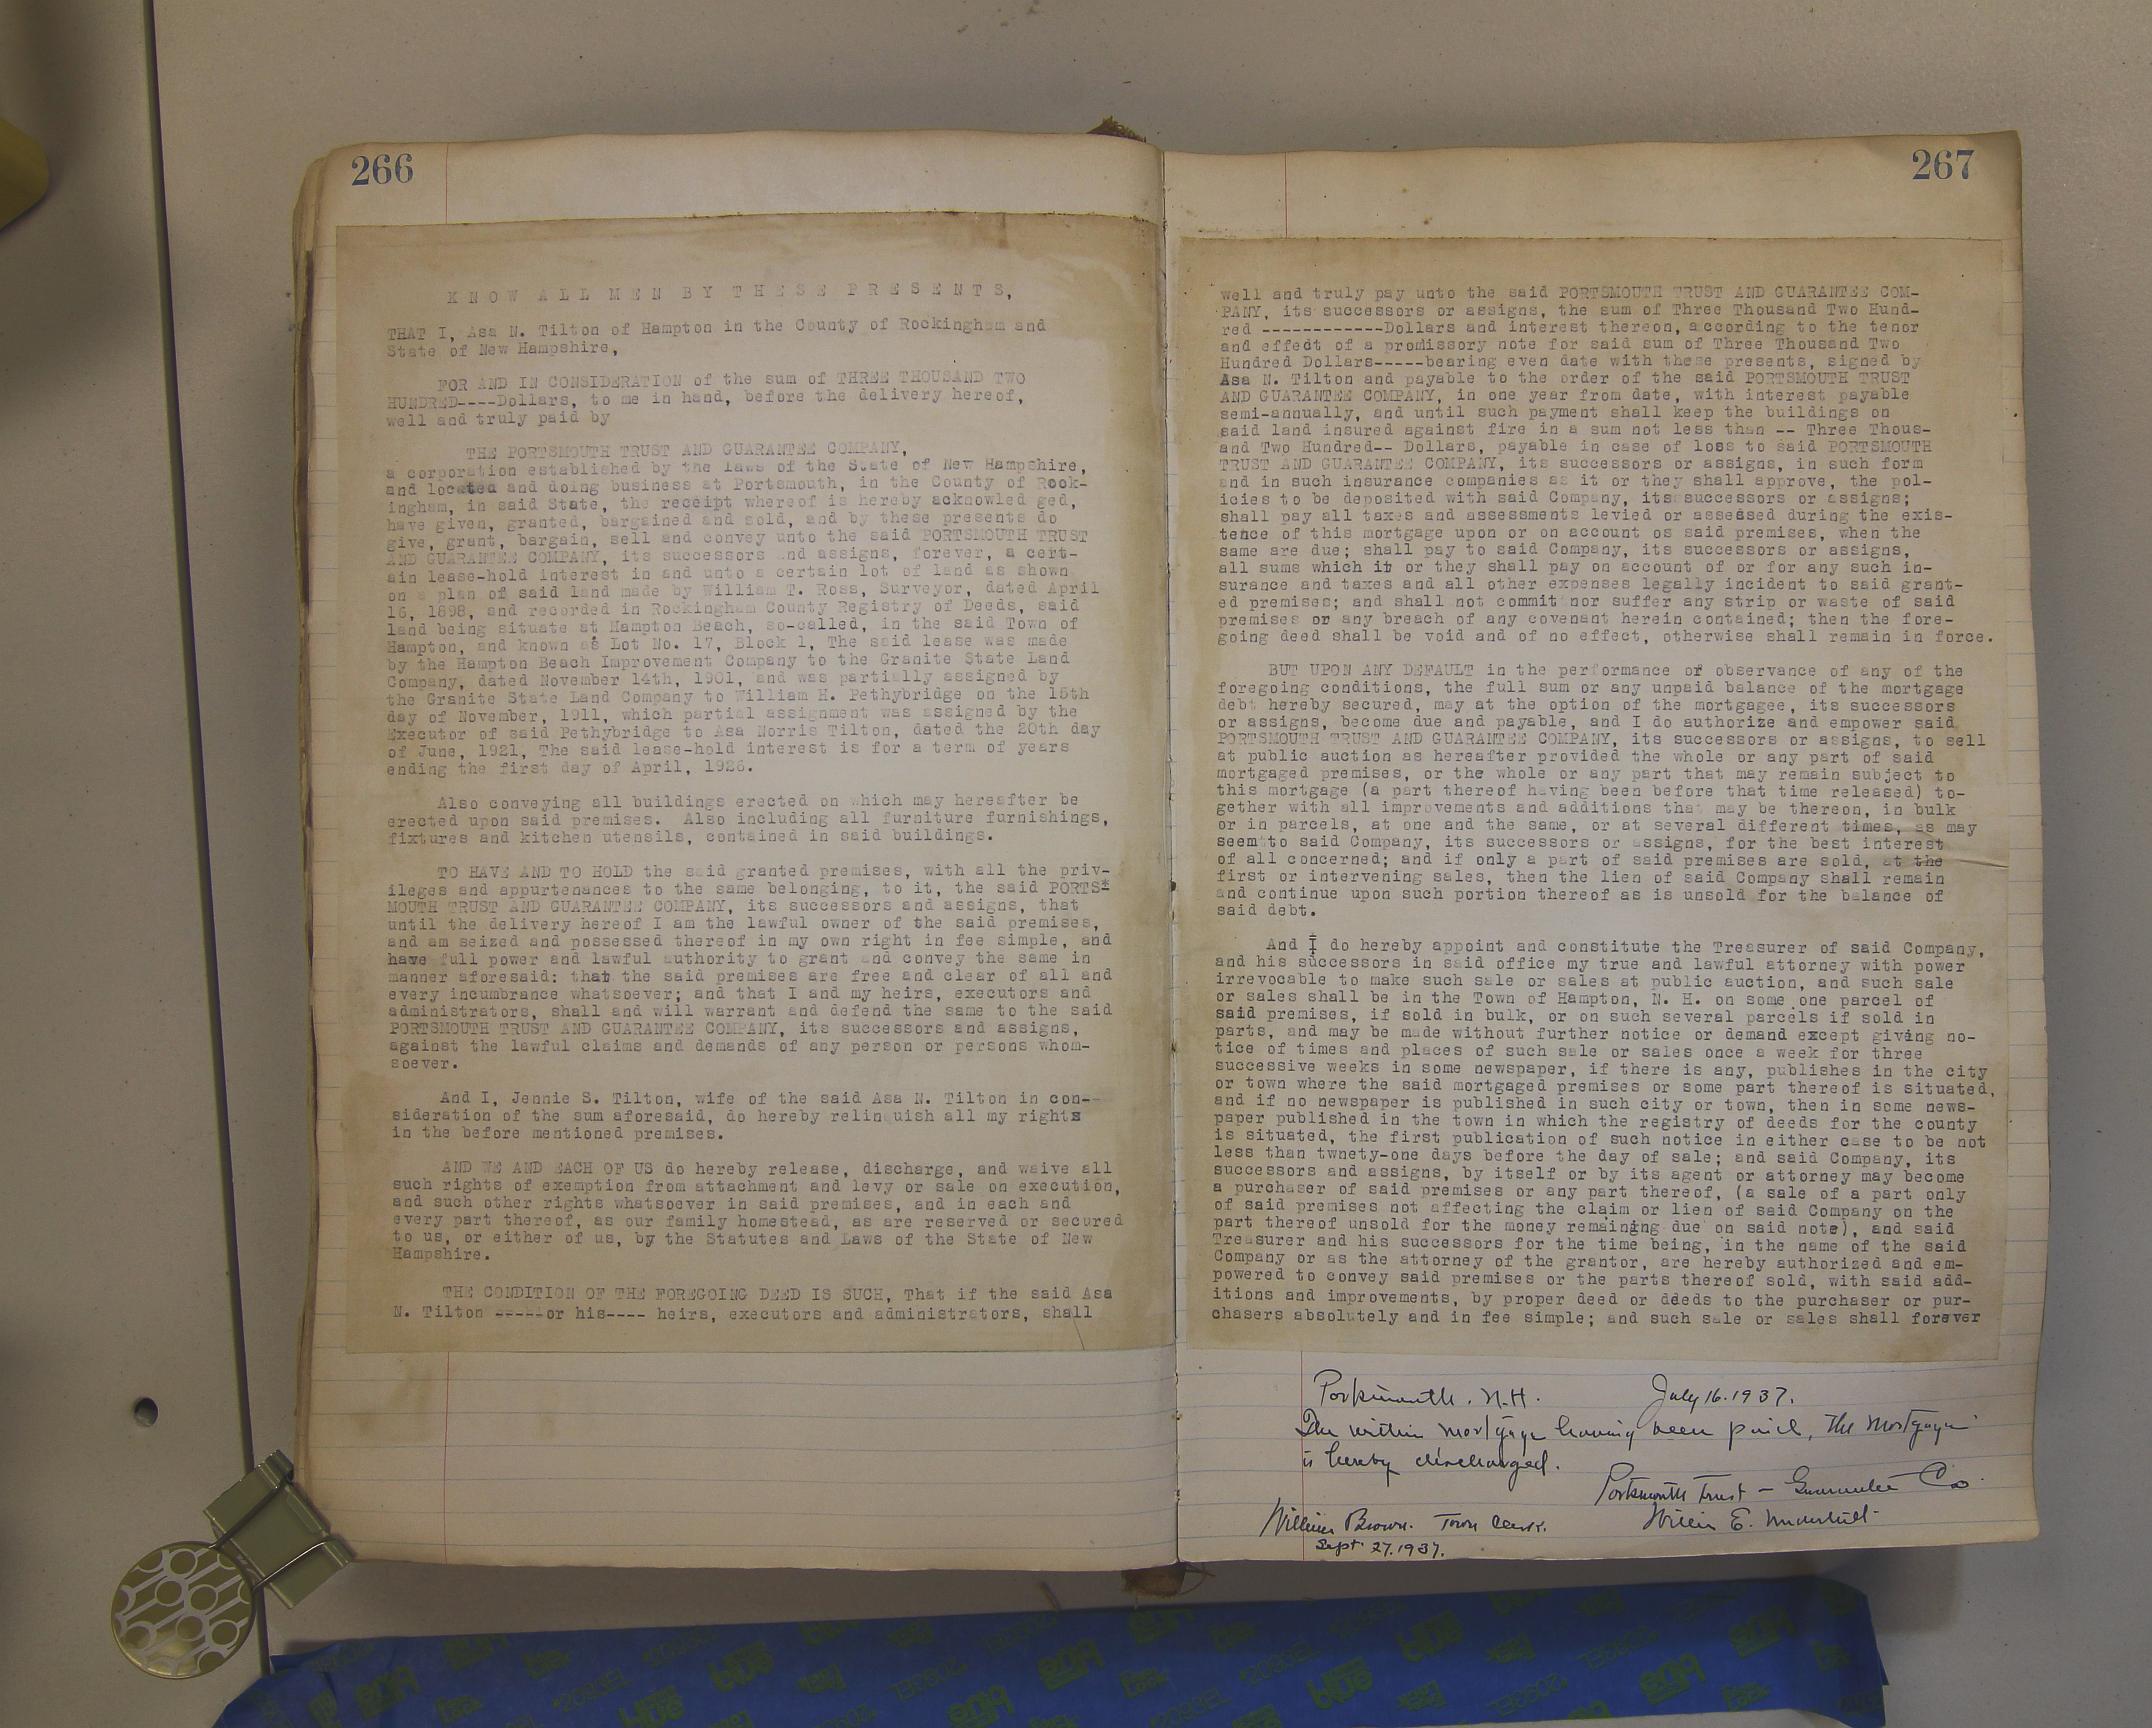 266
K N O W A L L M E N B Y T H E S E P R E S E N T S,
THAT I, Asa N. Tilton of Hampton in the County of Rockingham and
State of New Hampshire,
FOR AND IN CONSIDERATION of the sum of THREE THOUSAND TWO
HUNDRED----Dollars, to me in hand, before the delivery hereof,
well and truly paid by
THE PORTSMOUTH TRUST AND GUARANTEE COMPANY,
a corporation established by the laws of the State of New Hampshire,
and located and doing business at Portsmouth, in the County of Rock-
ingham, in said State, the receipt whereof is hereby acknowled ged,
have given, granted, bargained and sold, and by these presents do
give, grant, bargain, sell and convey unto the said PORTSMOUTH TRUST
AND GUARANTEE COMPANY, its successors and assigns, forever, a cert-
ain lease-hold interest in and unto a certain lot of land as shown
on a plan of said land made by William T. Ross, Surveyor, dated April
16, 1898, and recorded in Rockingham County Registry of Deeds, said
land being situate at Hampton Beach, so-called, in the said Town of
Hampton, and known as Lot No. 17, Block 1, The said lease was made
by the Hampton Beach Improvement Company to the Granite State Land
Company, dated November 14th, 1901, and was partially assigned by
the Granite State Land Company to William H. Pethybridge on the 15th
day of November, 1911, which partial assignment was assigned by the
Executor of said Pethybridge to Asa Norris Tilton, dated the 20th day
of June, 1921, The said lease-hold interest is for a term of years
ending the first day of April, 1926.
Also conveying all buildings erected on which may hereafter be
erected upon said premises. Also including all furniture furnishings,
fixtures and kitchen utensils, contained in said buildings.
TO HAVE AND TO HOLD the said granted premises, with all the priv-
ileges and appurtenances to the same belonging, to it, the said PORTS-
MOUTH TRUST AND GUARANTEE COMPANY, its successors and assigns, that
until the delivery hereof I am the lawful owner of the said premises,
and am seized and possessed thereof in my own right in fee simple, and
have full power and lawful authority to grant and convey the same in
manner aforesaid: that the said premises are free and clear of all and
every incumbrance whatsoever; and that I and my heirs, executors and
administrators, shall and will warrant and defend the same to the said
PORTSMOUTH TRUST AND GUARANTEE COMPANY, its successors and assigns,
against the lawful claims and demands of any person or persons whom-
soever.
And I, Jennie S. Tilton, wife of the said Asa N. Tilton in con-
sideration of the sum aforesaid, do hereby relinquish all my rights
in the before mentioned premises.
AND WE AND EACH OF US do hereby release, discharge, and waive all
such rights of exemption from attachment and levy or sale on execution,
and such other rights whatsoever in said premises, and in each and
every part thereof, as our family homestead, as are reserved or secured
to us, or either of us, by the Statutes and Laws of the State of New
Hampshire.
THE CONDITION OF THE FOREGOING DEED IS SUCH, That if the said Asa
N. Tilton -----or his---- heirs, executors and administrators, shall
267
well and truly pay unto the said PORTSMOUTH TRUST AND GUARANTEE COM-
PANY, its successors or assigns, the sum of Three Thousand Two Hund-
red ------------Dollars and interest thereon, according to the tenor
and effect of a promissory note for said sum of Three Thousand Two
Hundred Dollars-----bearing even date with these presents, signed by
Asa N. Tilton and payable to the order of the said PORTSMOUTH TRUST
AND GUARANTEE COMPANY, in one year from date, with interest payable
semi-annually, and until such payment shall keep the buildings on
said land insured against fire in a sum not less than -- Three Thous-
and Two Hundred-- Dollars, payable in case of loss to said PORTSMOUTH
TRUST AND GUARANTEE COMPANY, its successors or assigns, in such form
and in such insurance companies as it or they shall approve, the pol-
icies to be deposited with said Company, its successors or assigns;
shall pay all taxes and assessments levied or assessed during the exis-
tence of this mortgage upon or on account os said premises, when the
same are due; shall pay to said Company, its successors or assigns,
all sums which it or they shall pay on account of or for any such in-
surance and taxes and all other expenses legally incident to said grant-
ed premises; and shall not commit nor suffer any strip or waste of said
premises or any breach of any covenant herein contained; then the fore-
going deed shall be void and of no effect, otherwise shall remain in force.
BUT UPON ANY DEFAULT in the performance of observance of any of the
foregoing conditions, the full sum or any unpaid balance of the mortgage
debt hereby secured, may at the option of the mortgagee, its successors
or assigns, become due and payable, and I do authorize and empower said
PORTSMOUTH TRUST AND GUARANTEE COMPANY, its successors or assigns, to sell
at public auction as hereafter provided the whole or any part of said
mortgaged premises, or the whole or any part that may remain subject to
this mortgage (a part thereof having been before that time released) to-
gether with all improvements and additions that may be thereon, in bulk
or in parcels, at one and the same, or at several different times, as may
seem to said Company, its successors or assigns, for the best interest
of all concerned; and if only a part of said premises are sold, at the
first or intervening sales, then the lien of said Company shall remain
and continue upon such portion thereof as is unsold for the balance of
said debt.
And I do hereby appoint and constitute the Treasurer of said Company,
and his successors in said office my true and lawful attorney with power
irrevocable to make such sale or sales at public auction, and such sale
or sales shall be in the Town of Hampton, N. H. on some one parcel of
said premises, if sold in bulk, or on such several parcels if sold in
parts, and may be made without further notice or demand except giving no-
tice of times and places of such sale or sales once a week for three
successive weeks in some newspaper, if there is any, publishes in the city
or town where the said mortgaged premises or some part thereof is situated,
and if no newspaper is published in such city or town, then in some news-
paper published in the town in which the registry of deeds for the county
is situated, the first publication of such notice in either case to be not
less than twnety-one days before the day of sale; and said Company, its
successors and assigns, by itself or by its agent or attorney may become
a purchaser of said premises or any part thereof, (a sale of a part only
of said premises not affecting the claim or lien of said Company on the
part thereof unsold for the money remaining due on said note), and said
Treasurer and his successors for the time being, in the name of the said
Company or as the attorney of the grantor, are hereby authorized and em-
powered to convey said premises or the parts thereof sold, with said add-
itions and improvements, by proper deed or ddeds to the purchaser or pur-
chasers absolutely and in fee simple; and such sale or sales shall forever
Portsmouth. N.H. July 16. 1937.
The within mortgage having been paid, the Mortgage
is hereby discharged.
Portsmouth Trust – Guarantee Co
William Brown. Town Clerk. Willis E. Underhill
Sept. 27. 1937.